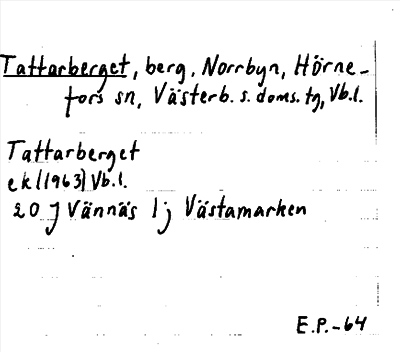 Tattarberget, berg, Norrbyn, Hörne-
fors sn, Västerb. s. doms. tg, Vb.l.
Tattarberget
ek (1963) Vb.l.
20 J Vännäs 1j Västamarken
E.P.-64